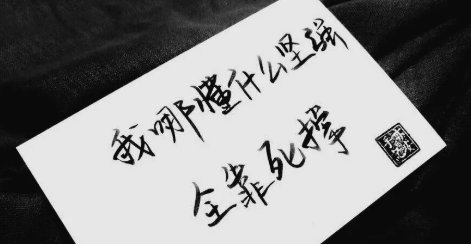 我哪懂什么坚强
全靠死撑